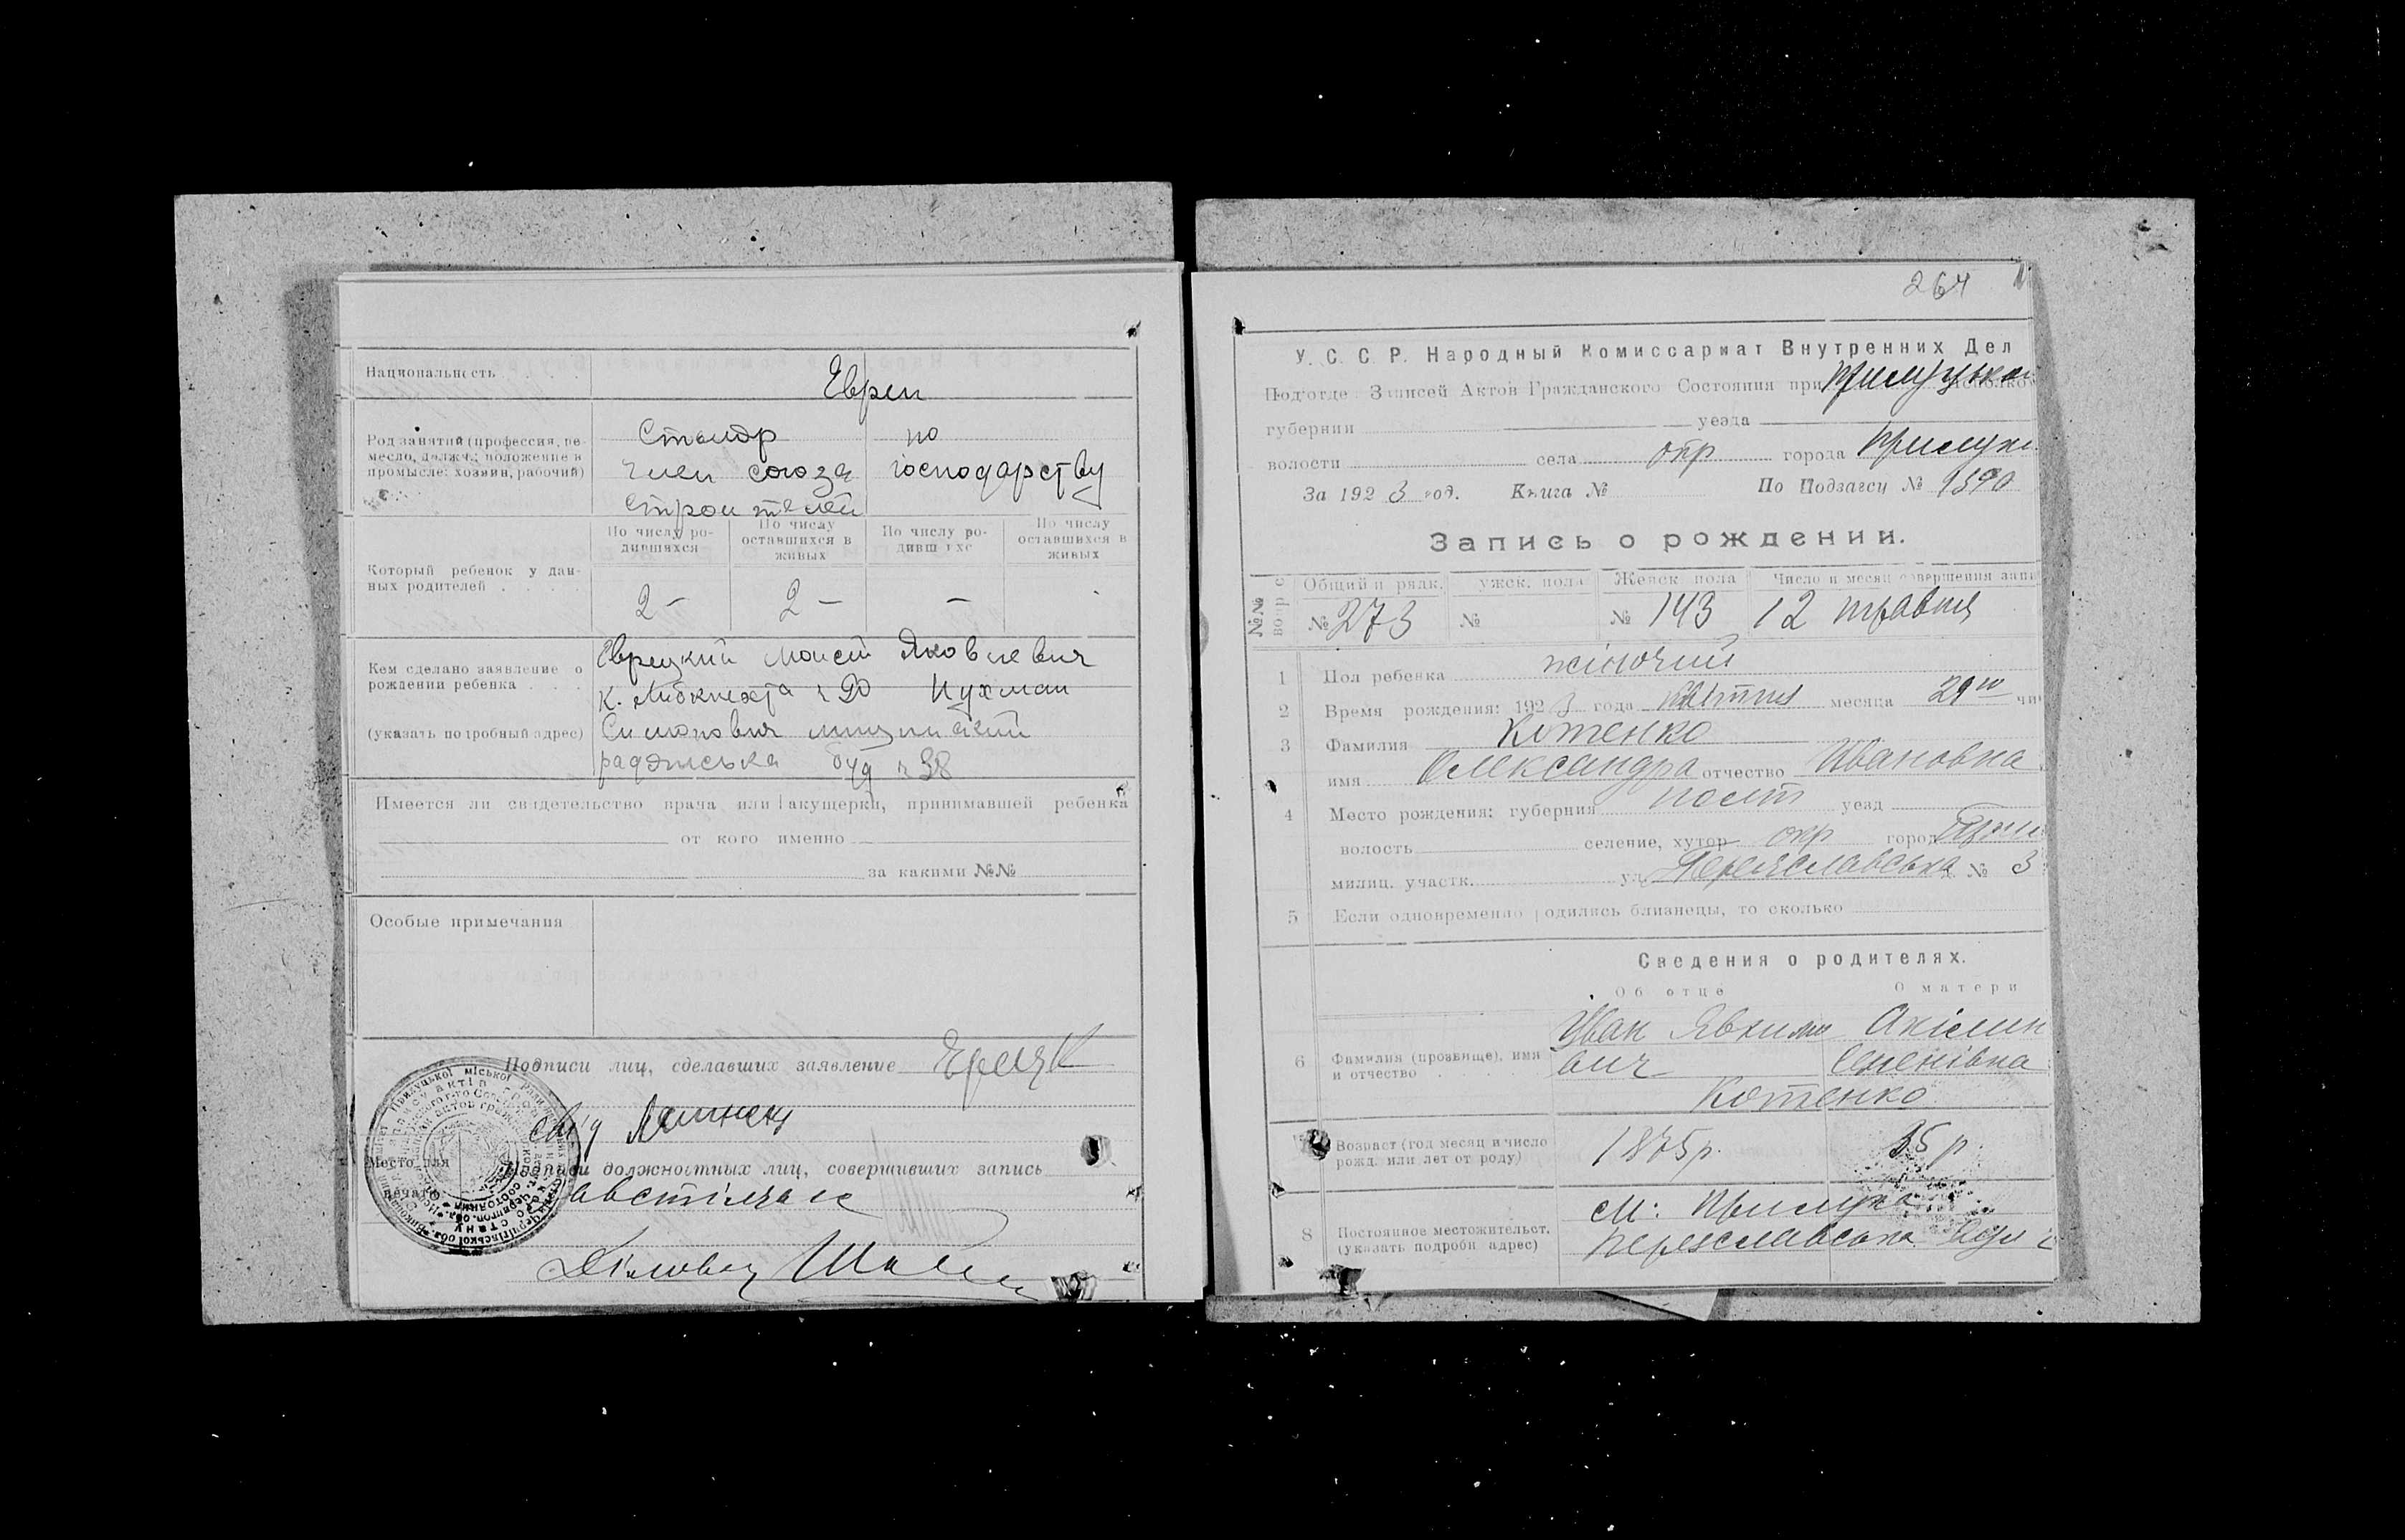 Национальность
Евреи
Род занятий (профессия, ре-
месло, должн.; положение в
промысле: хозяин, рабочий)
Столяр
член союза
строителей
по
господарству
Который ребенок у дан-
ных родителей
По числу ро-
дившихся
По числу
оставшихся в
живых
По числу ро-
дившихс
По числу
оставшихся в
живых
2 –
2 –
–
Кем сделано заявление о
рождении ребенка
(указать подробный адрес)
Моисей Яковлевич
К. Либкнехта 20
Симонович
радянська буд 38
Имеется ли свидетельство врача или акушерки, принимавшей ребенка
от кого именно
за какими №№
Особые примечания
Подписи лиц, сделавших заявление
Место для
печати
Подписи должностных лиц, совершивших запись
Діловод
264
У. С. С. Р. Народный Комиссариат Внутренних Дел
Подотде Записей Актов Гражданского Состояния при
губернии уезда
волости села окр города Прилуки
За 1923 год. Книга № По Подзагсу № 1590
Запись о рождении.
№№
Общий п рядк.
ужск. пола
Женск. пола
Число и месяц совершения запи
№ 273
№
№ 143
12 травня
1 Пол ребенка жіночий
2 Время рождения: 1923 года квітня месяца 29го чи
3 Фамилия Котенко
имя Олександра отчество Ивановна
4 Место рождения: губерния полт уезд
волость селение, хутор окр город При
милиц. участк. ул. Переяславська № 3
5 Если одновременно родились близнецы, то сколько
Сведения о родителях.
Об отце
О матери
6 Фамилия (прозвище), имя
и отчество
Иван Явхимо
вич
Акілин
Семенівна
Котенко
7 Возраст (год месяц и число
рожд. или лет от роду)
1875р.
35 р.
8 Постоянное местожительст.
(указать подробн адрес)
м. Прилука
Переяславська вул